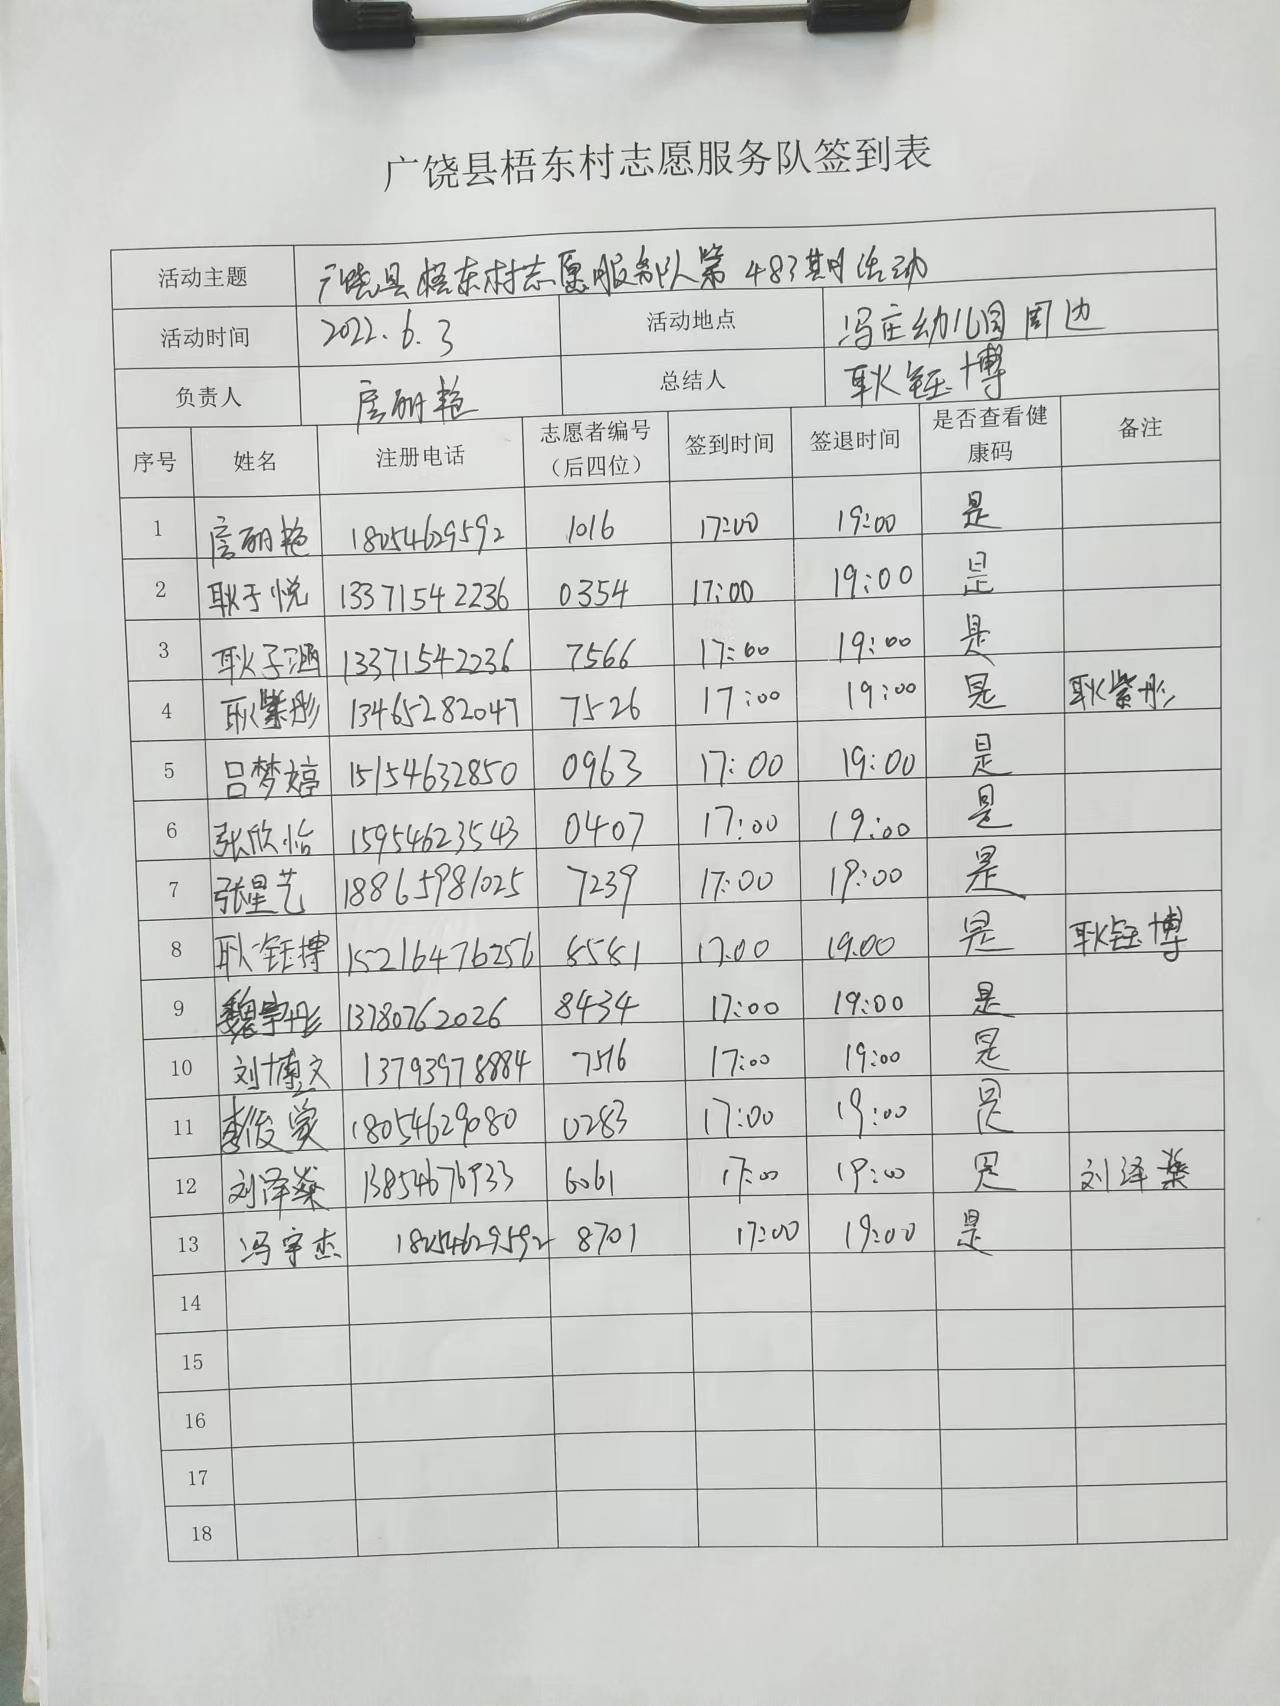 广饶县梧东村志愿服务队签到表
活动主题 广饶县梧东村志愿服务队第483期活动
活动时间 2022.6.3 活动地点 冯庄幼儿园周边
负责人 房丽艳 总结人 耿钰博
序号 姓名 注册电话 志愿者编号（后四位） 签到时间 签退时间 是否查看健康码 备注
1 房丽艳 18054629592 1016 17:00 19:00 是
2 耿于悦 13371542236 0354 17:00 19:00 是
3 耿子涵 13371542236 7566 17:00 19:00 是
4 耿紫彤 13465282047 7526 17:00 19:00 是 耿紫彤
5 吕梦婷 15154632850 0963 17:00 19:00 是
6 张欣怡 15954623543 0407 17:00 19:00 是
7 张星艺 18865981025 7239 17:00 19:00 是
8 耿钰博 15216476256 8581 17:00 19:00 是 耿钰博
9 魏宇彤 13780762026 8434 17:00 19:00 是
10 刘博文 13793978884 7516 17:00 19:00 是
11 李俊 18054629080 0283 17:00 19:00 是
12 刘泽燊 13854676933 6061 17:00 19:00 是 刘泽燊
13 冯宇杰 18054629592 8701 17:00 19:00 是
14
15
16
17
18